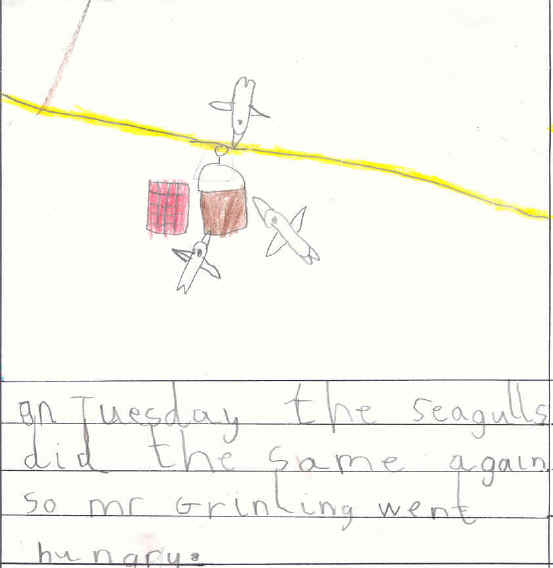 on Tuesday the seagulls
did the same again
so mr Grinling went
hungry.